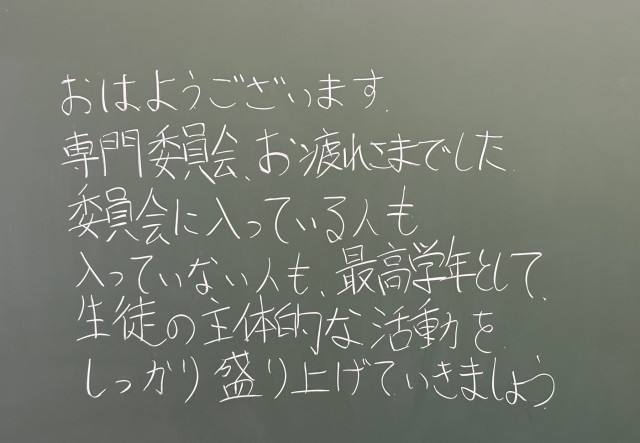 おはようございます.
専門委員会、お疲れさまでした.
委員会に入っている人も
入っていない人も、最高学年として、
生徒の主体的な活動を
しっかり盛り上げていきましょう